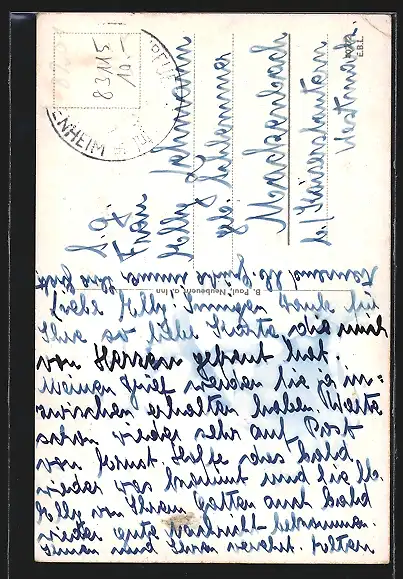 83115
10.-
ENHEIM
S. g.
Frau
Elly Lehmann
geb.
Mackenbach
b/ Kaiserslautern
Westmark
E.B.L.
B. Paul, Neubeuern a. Inn
Liebe Elly! Innigen Dank für
Ihre so liebe Karte die mich
von Herzen gefreut hat.
Meinen Brief werden Sie ja in=
zwischen erhalten haben. Warte
schon wieder sehr auf Post
von Ernst. Hoffe das bald
wieder was kommt und Sie lb.
Elly von Ihrem Gatten auch bald
wieder gute Nachricht bekommen.
Ihnen und Ihren